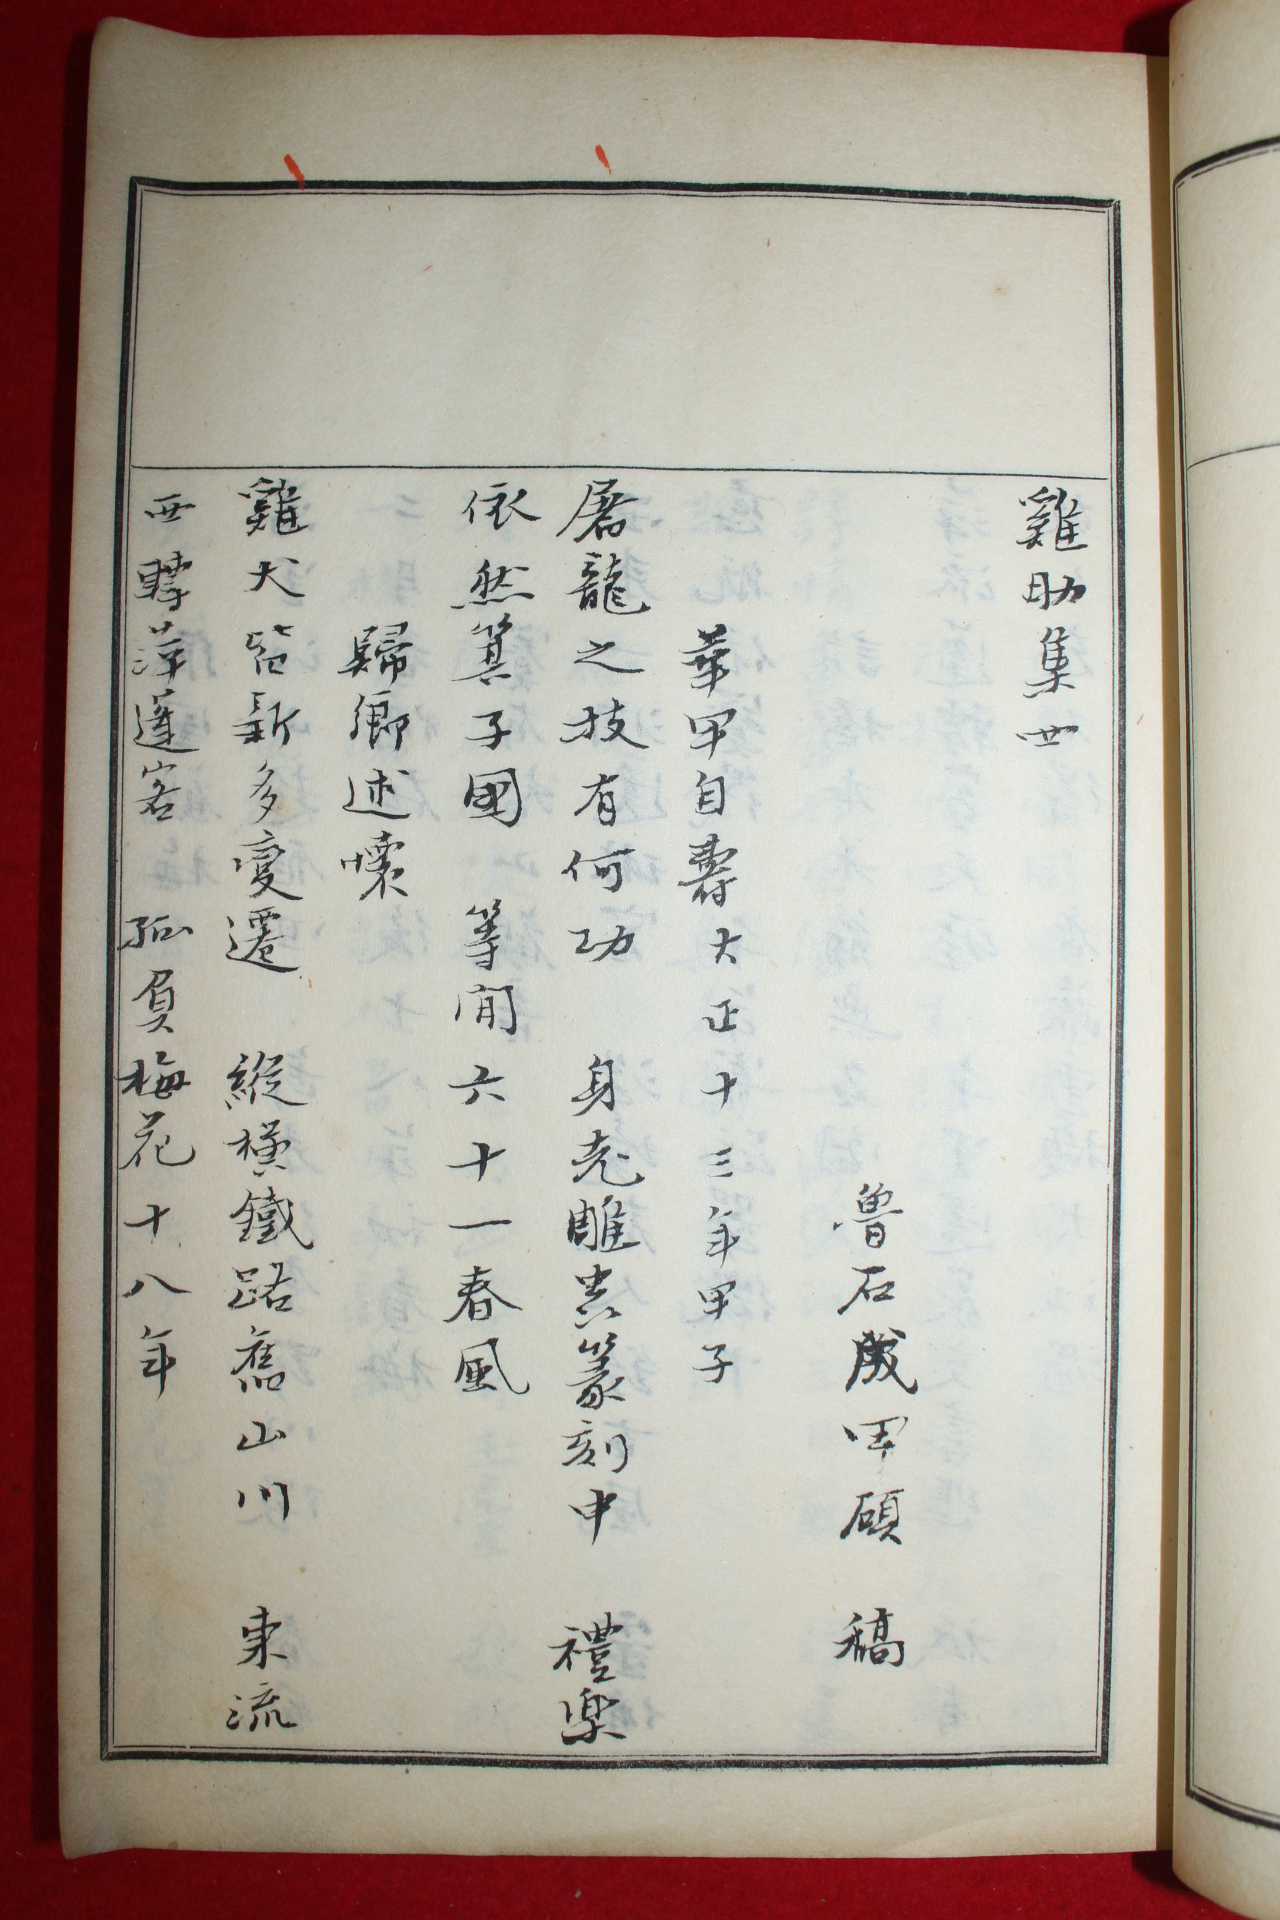 雞肋集 廿
魯石成甲碩 稿
華甲自壽 大正十三年甲子
屠龍之技有何功 身老雕虫篆刻中 禮楽
依然箕子國 等閒六十一春風
歸鄉述懷
雞犬皆新多變遷 縱橫鐵路舊山川 東流
西轉萍蓬客 孤負梅花十八年